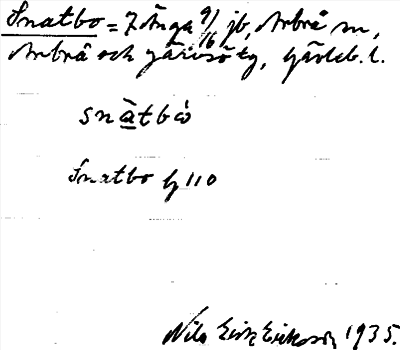 Snatbo = 7 Änga 9/16 jb, Arbrå sn,
Arbrå och Järvsö tg, Gävleb. l.
snàtbò
Snatbo by 110
Nils Eric Ericsson 1935.